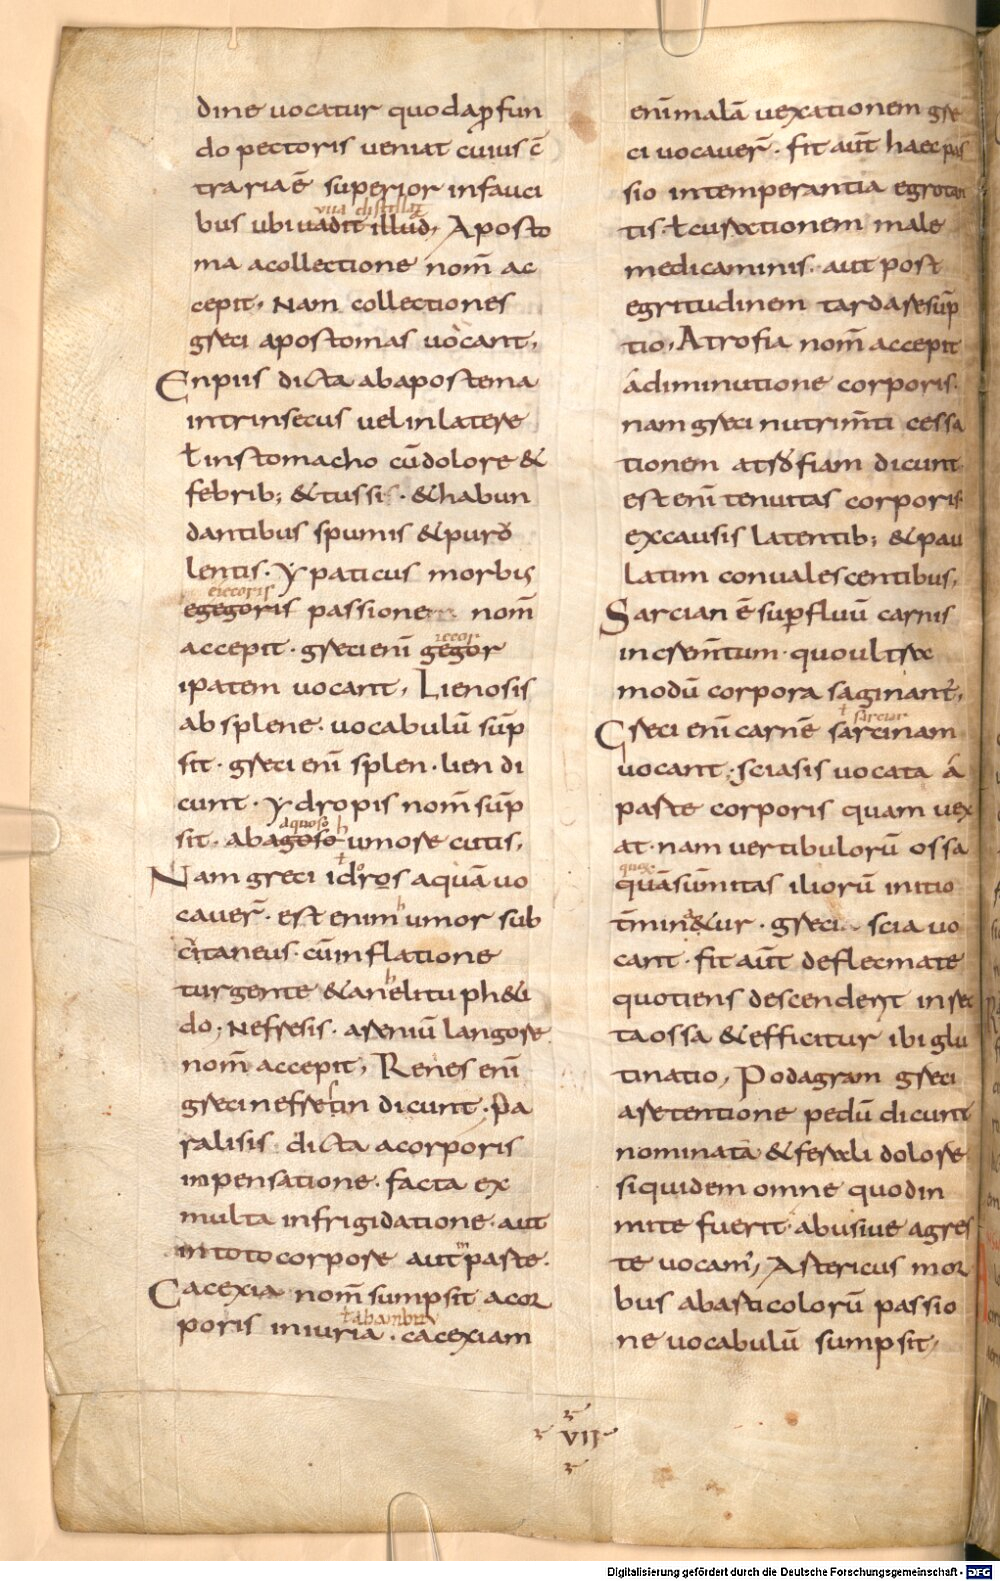 dine uocatur quod aꝓfun
do pectoris ueniat cuius c̄
traria ē superior in fauci
uua distillat
bus ubi uadit illud, Aposto
ma a collectione nom̄ ac
cepit, Nam collectiones
greci apostomas uocant,
Enpiis dicta ab apostema
intrinsecus uel in latere
ł in stomacho cū dolore &
febrib; & tussis · & habun
dantibus spumis & puro
lentis · Ypaticus morbis
eiecoris
egegoris passione nom̄
accepit · greci enī gegor
iecor
ipatem uocant, Lienosis
ab splene · uocabulū sūp
sit · greci enī splen · lien di
cunt · Ydropis nom̄ sūp
aquoso h
sit · ab agoso umose cutis,
Nam greci idros aquā uo
cauer̄ · est enim humor sub
citaneus · cū inflatione
turgente & anhelitu ph&i
do, Nefresis · a reniū langore
nom̄ accepit, Renes enī
greci nefretin dicunt · Pa
ralisis dicta a corporis
inpensatione · facta ex
multa infrigidatione · aut
in toto corpore aut in parte ·
Cacexia nom̄ sumpsit a cor
poris iniuria · cacexiam
ł abambitu
enī malā uexationem gre
ci uocauer̄ · fit aūt haec pas
sio intemperantia egrotan
tis · ł cusectionem male
medicaminis · aut post
egritudinem tarda resūp
tio, Atrofia nom̄ accepit
á diminutione corporis ·
nam greci nutrim̄ti cessa
tionem atrofiam dicunt
est enī tenuitas corporis
ex causis latentib; & pau
latim conualescentibus,
Sarcian ē suꝑfluū carnis
incrementum · quo ultrex
modū corpora saginant,
ł sarciar
Greci enī carnē sarcinam
uocant · sciasis uocata á
parte corporis quam uex
at · nam uertibulorū ossa
quor
quā sūmitas iliorū initio
t̄min&ur · greci scia uo
cant · fit aūt de flecmate
quotiens descenderit in rec
ta ossa & efficitur ibi glu
tinatio, Podagram greci
a retentione pedū dicunt
nominatā & ferali dolore
siquidem omne quod in
mite fuerit · abusiue agres
te uocam', Artericus mor
bus ab articolorū passio
ne uocabulū sumpsit,
VII
Digitalisierung gefördert durch die Deutsche Forschungsgemeinschaft - DFG